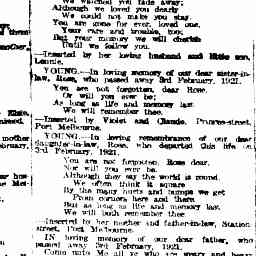 We watched you fade away;
Although we loved you dearly
We could not make you stay.
You are gone for ever, loved one,
Your care and trouble, too;
But your memory we will cherish
Until we follow you.
—Inserted by her loving husband and little son,
Lennie.
YOUNG.—In loving memory of our dear sister-in-
law, Rose, who passed away 3rd February, 1921.
You are not forgotten, dear Rose,
Or will you ever be;
As long as life and memory last
We will remember thee.
—Inserted by Violet and Claude, street,
Port Melbourne.
YOUNG.—In loving remembrance of our dear
daughter-in-law, Rose, who departed this life on
3rd February, 1921.
You are not forgotten, Rose dear,
Nor will you ever be.
Although they say the world is round,
We often think it square
By the many hurts and bumps we get
From corners here and there
But as long as life and memory last
We will both remember thee
—Inserted by her mother and father-in-law, Station
street, Port Melbourne.
IN loving memory of our dear father, who
passed away 3rd February, 1921.
Come unto Me all ye who are weary and heavy